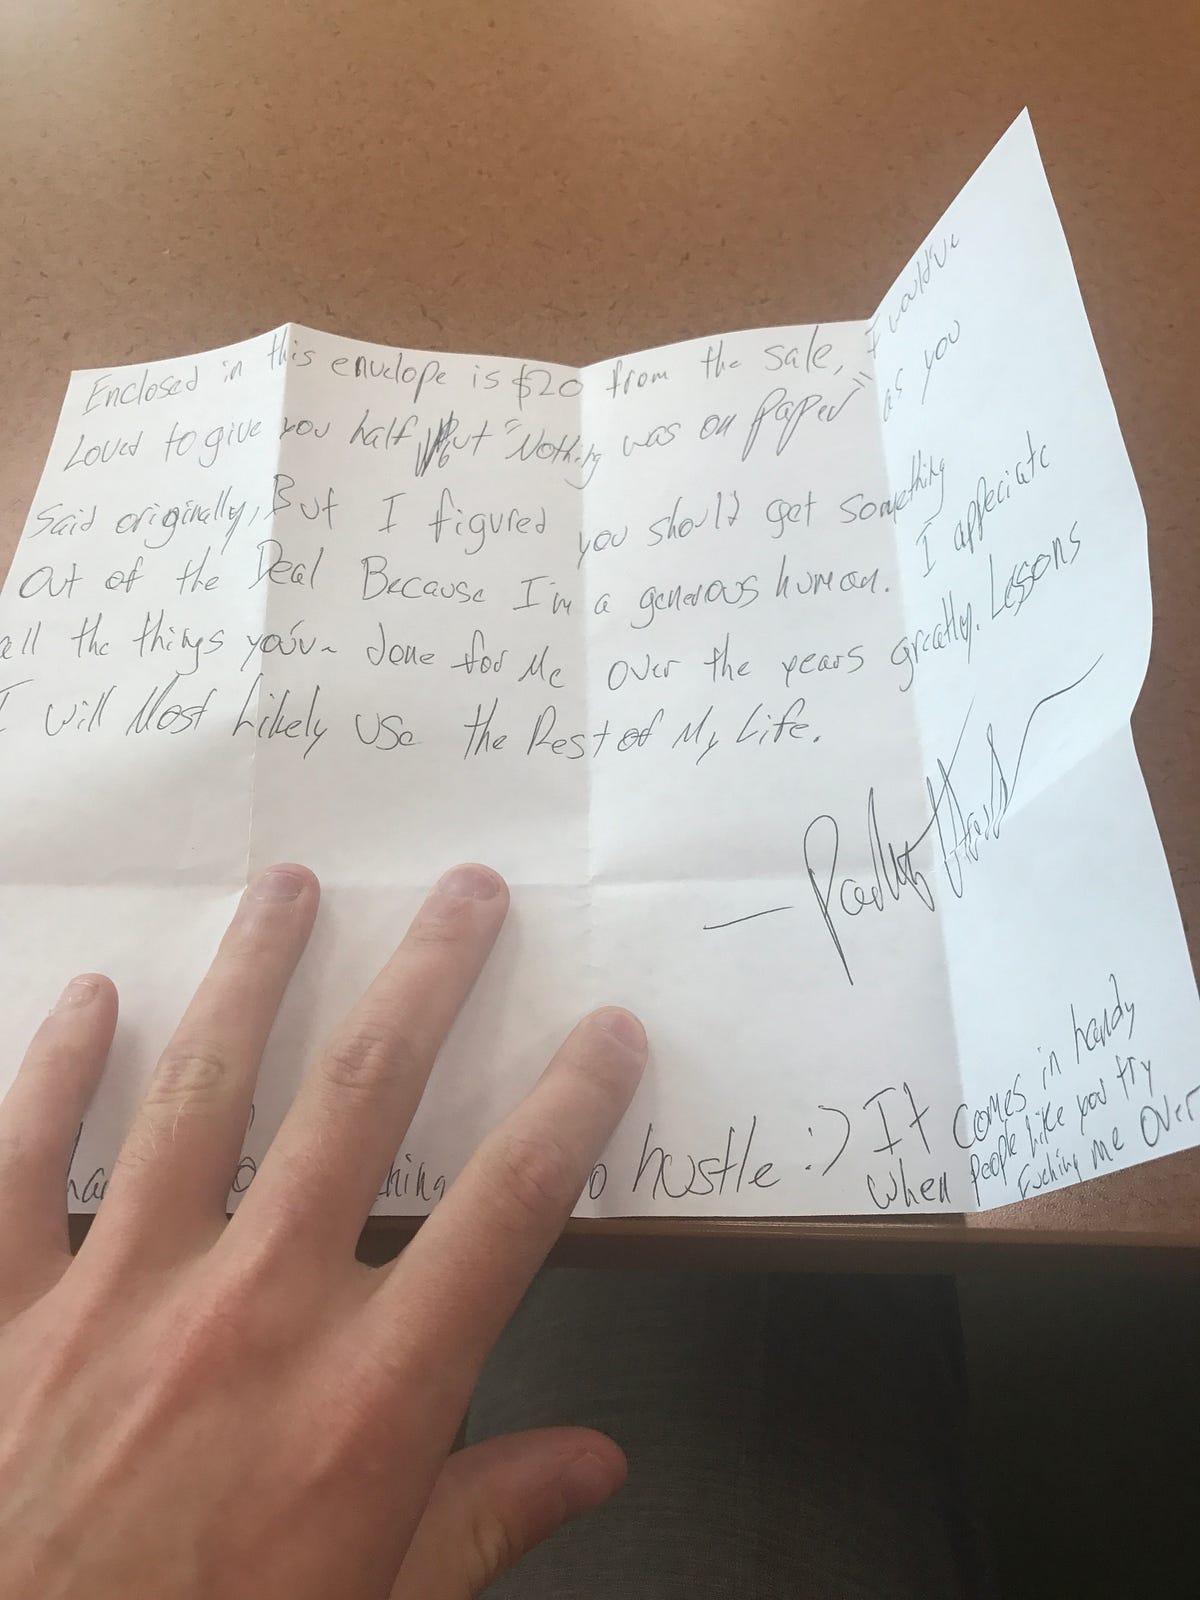 Enclosed in this envelope is $20 from the sale, I would've
Loved to give you half, But "Nothing was on paper" as you
Said originally, But I figured you should get something
Out of the Deal Because I'm a generous human. I appreciate
all the things you've done for Me over the years greatly. Lessons
I will Most Likely use the Rest of My Life.
hustle :) It comes in handy
when people like you try
Fucking me over